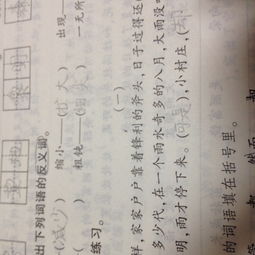 出下列词语的反义词。
(减少) 缩小——(扩大) 出现——
一无所
练习。
(一)
样，家家户户靠着锋利的斧头，日子过得还
多少代，在一个雨水奇多的八月，大雨没
明，雨才停下来。(可是)，小村庄，(却)
的词语填在括号里。
然而 却